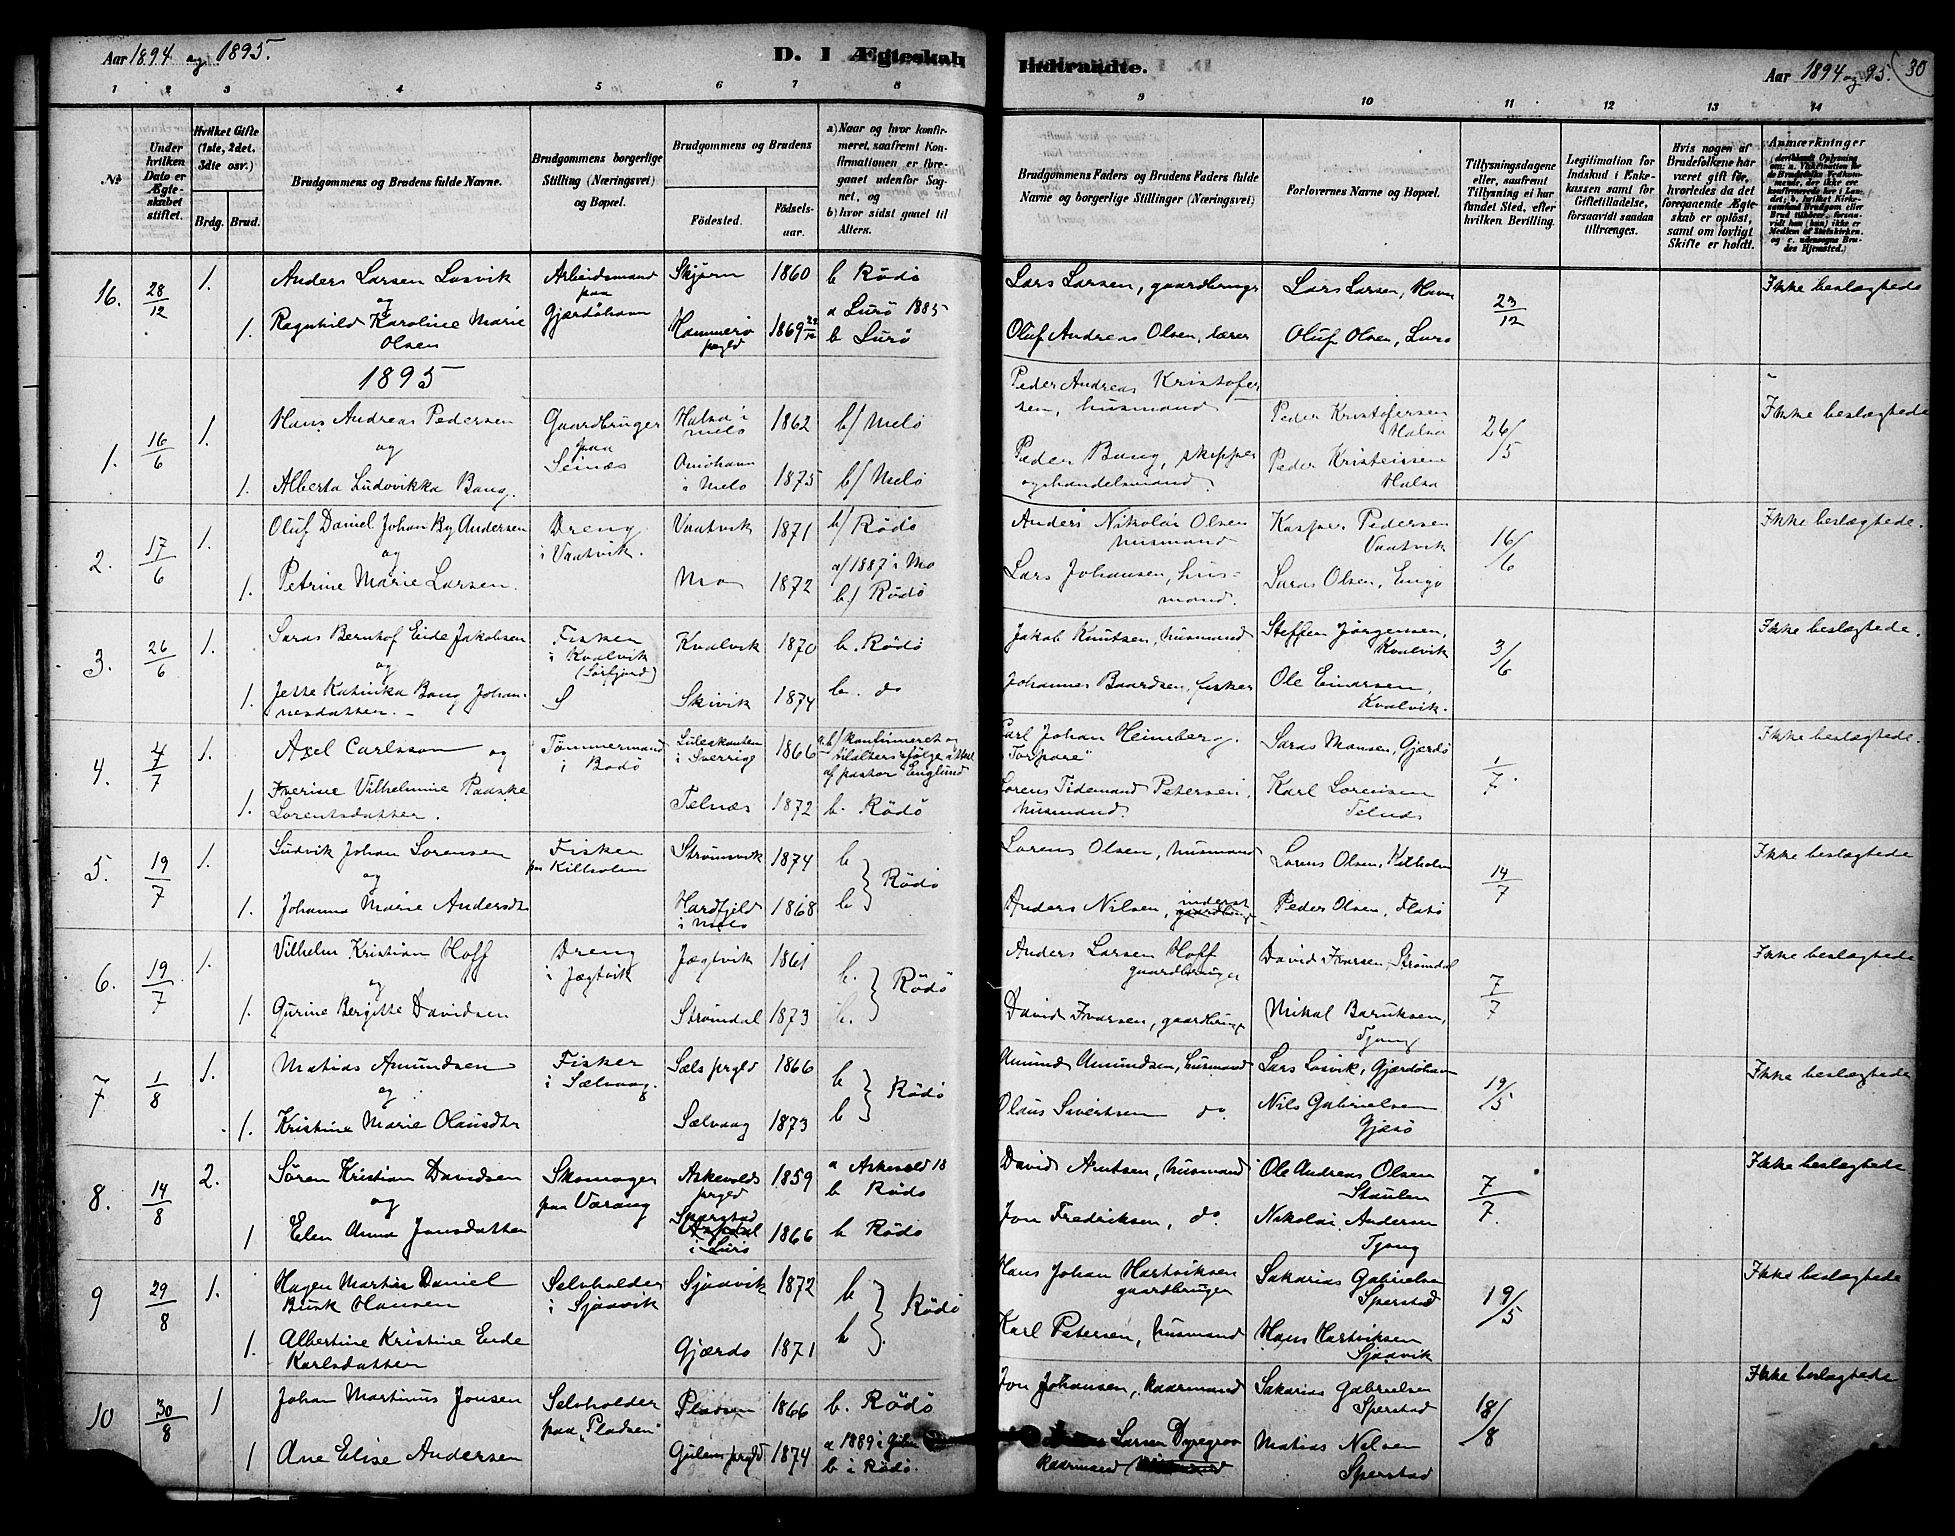 Aar 1894 og 1895.
D. I Ægteskab
Indtraadte.
Aar 1894 og 95.
30
1 2 3 4 5 6 7 8
9 10 11 12 13 14
№
Under hvilken Dato er Ægteskabet stiftet.
Hvilket Gifte (1ste, 2det, 3dte osv.)
Brdg. Brud.
Brudgommens og Brudens fulde Navne.
Brudgommens borgerlige Stilling (Næringsvei) og Bopæl.
Brudgommens og Brudens
Fødested.
Fødselsaar.
a) Naar og hvor konfirmeret, saafremt Konfirmationen er foregaaet udenfor Sognet, og
b) hvor sidst gaaet til Alters.
Brudgommens Faders og Brudens Faders fulde Navne og borgerlige Stillinger (Næringsvei)
Forlovernes Navne og Bopæl.
Tillysningsdagene eller, saafremt Tillysning ei har fundet Sted, efter hvilken Bevilling.
Legitimation for Indskud i Enkekassen samt for Giftetilladelse, forsaavidt saadan tiltrænges.
Hvis nogen af Brudefolkene har været gift før, hvorledes da det foregaaende Ægteskab er opløst, samt om lovligt Skifte er holdt.
Anmærkninger
16. 28/12 1. Anders Larsen Losvik Arbeidsmand Skjern 1860 b Rödö
og paa
1. Ragnhild Karoline Marie Gjærdöhavn Hammerö 1869 a Lurö 1885
Olsen prgld b Lurö
Lars Larsen, gaardbruger Lars Larsen, Havn 23/12 Ikke beslægtede
Oluf Andreas Olsen, lærer Oluf Olsen, Lurö
1895
1. 16/6 1. Hans Andreas Pedersen Gaardbruger Halsa i Melö 1862 b/ Melö
og paa
1. Alberta Ludovikka Bang. Senæs i Melö 1875 b/ Melö
Peder Andreas Kristofersen, husmand Peder Kristofersen Halsa 26/5 Ikke beslægtede
Peder Bang, skipper og handelsmand. Peder Kristensen Halsa
2. 17/6 1. Oluf Daniel Johan By Andersen Dreng Vaatvik 1871 b/ Rödö
og i Vaatvik.
1. Petrine Marie Larsen. Mo 1872 a/ 1887 i Mo
b/ Rödö
Anders Nikolai Olsen husmand Kasper Pedersen Vaatvik 16/6 Ikke beslægtede.
Lars Johansen, husmand. Saras Olsen, Engö
3. 26/6 1. Saras Bernhof Eide Jakobsen Fisker Kvalvik 1870 b. Rödö
og i Kvalvik (Sörfjord)
1. Jette Katinka Bang Johannesdatter. S Skivik 1874 b. do
Jakob Knutsen, husmand Steffen Jørgensen, Kvalvik 3/6 Ikke beslægtede.
Johannes Baardsen, fisker Ole Einarsen, Kvalvik.
4. 4/7 1. Axel Carlsson og Tømmermand i Sverrige 1866 konfirmeret og
i Bodö
af pastor Englund
1. Iverine Vilhelmine Paaske Telnæs 1872 b. Rödö
Lorentsdatter.
Carl Johan Heimberg. "Torpare" Saras Monsen, Gjærdö 1/7. Ikke beslægtede.
Lorens Tidemand Petersen, husmand. Karl Lorensen Telnæs
5. 19/7 1. Ludvik Johan Lorensen Fisker Strømsvik 1874 b
og paa Kilholmen Rödö
1. Johanna Marie Andersdtr Hardfjeld i Melö 1868 b
Lorens Olsen, husmand Lorens Olsen, Kilholmen 14/7 Ikke beslægtede
Anders Nilsen, inderst Peder Olsen, Flatö
6. 19/7 1. Vilhelm Kristian Hoff Dreng Jægtvik 1861 b.
og i Jægtvik Rödö
1. Gurine Bergitte Davidsen Strømdal 1873 b.
Anders Larsen Hoff gaardbruger David Ivarsen, Strømdal 7/7 Ikke beslægtede
David Ivarsen, gaardbruger Mikal Baruksen, Tjong
7 1/8 1. Matias Amundsen Fisker Sæls prgld 1866 b
og i Sælvaag. Rödö
1. Kristine Marie Olausdtr Sælvaag 1873 b
Amund Amundsen, husmand Lars Losvik, Gjærdöhavn 19/5 Ikke beslægtede
Olaus Sivertsen do. Nils Gabrielsen Gjæsö
8. 14/8 2. Søren Kristian Davidsen Skomager Askevolds prgld 1859 a Askevold 18
og paa Værang b Rödö
1 Elen Anna Jonsdatter Sperstad i Lurö 1866 b Rödö
David Arntsen, husmand Ole Andreas Olsen Staulen 7/7. Ikke beslægtede
Jon Fredriksen, do. Nikolai Andersen Tjong
9 29/8 1. Hagen Martin Daniel Selvholder Sjaavik 1872 b
Busk Hansen i Sjaavik Rödö
1. Albertine Kristine Eide Gjærdö 1871 b.
Karlsdatter
Hans Johan Hartviksen gaardbruger Sakarias Gabrielsen Sperstad 19/5 Ikke beslægtede
Karl Petersen, husmand Hans Hartviksen Sjaavik
10 30/8 1 Johan Martinus Jonsen Selvholder Pladsen 1866 b. Rödö
paa "Pladsen"
1 Ane Elise Andersen Gulens prgld 1874 a 1889 i Gulen
b i Rödö.
Jon Johansen, kaarmand Sakarias Gabrielsen Sperstad 18/8 Ikke beslægtede
Larsen Dyregrov kaarmand Matias Nilsen Sperstad